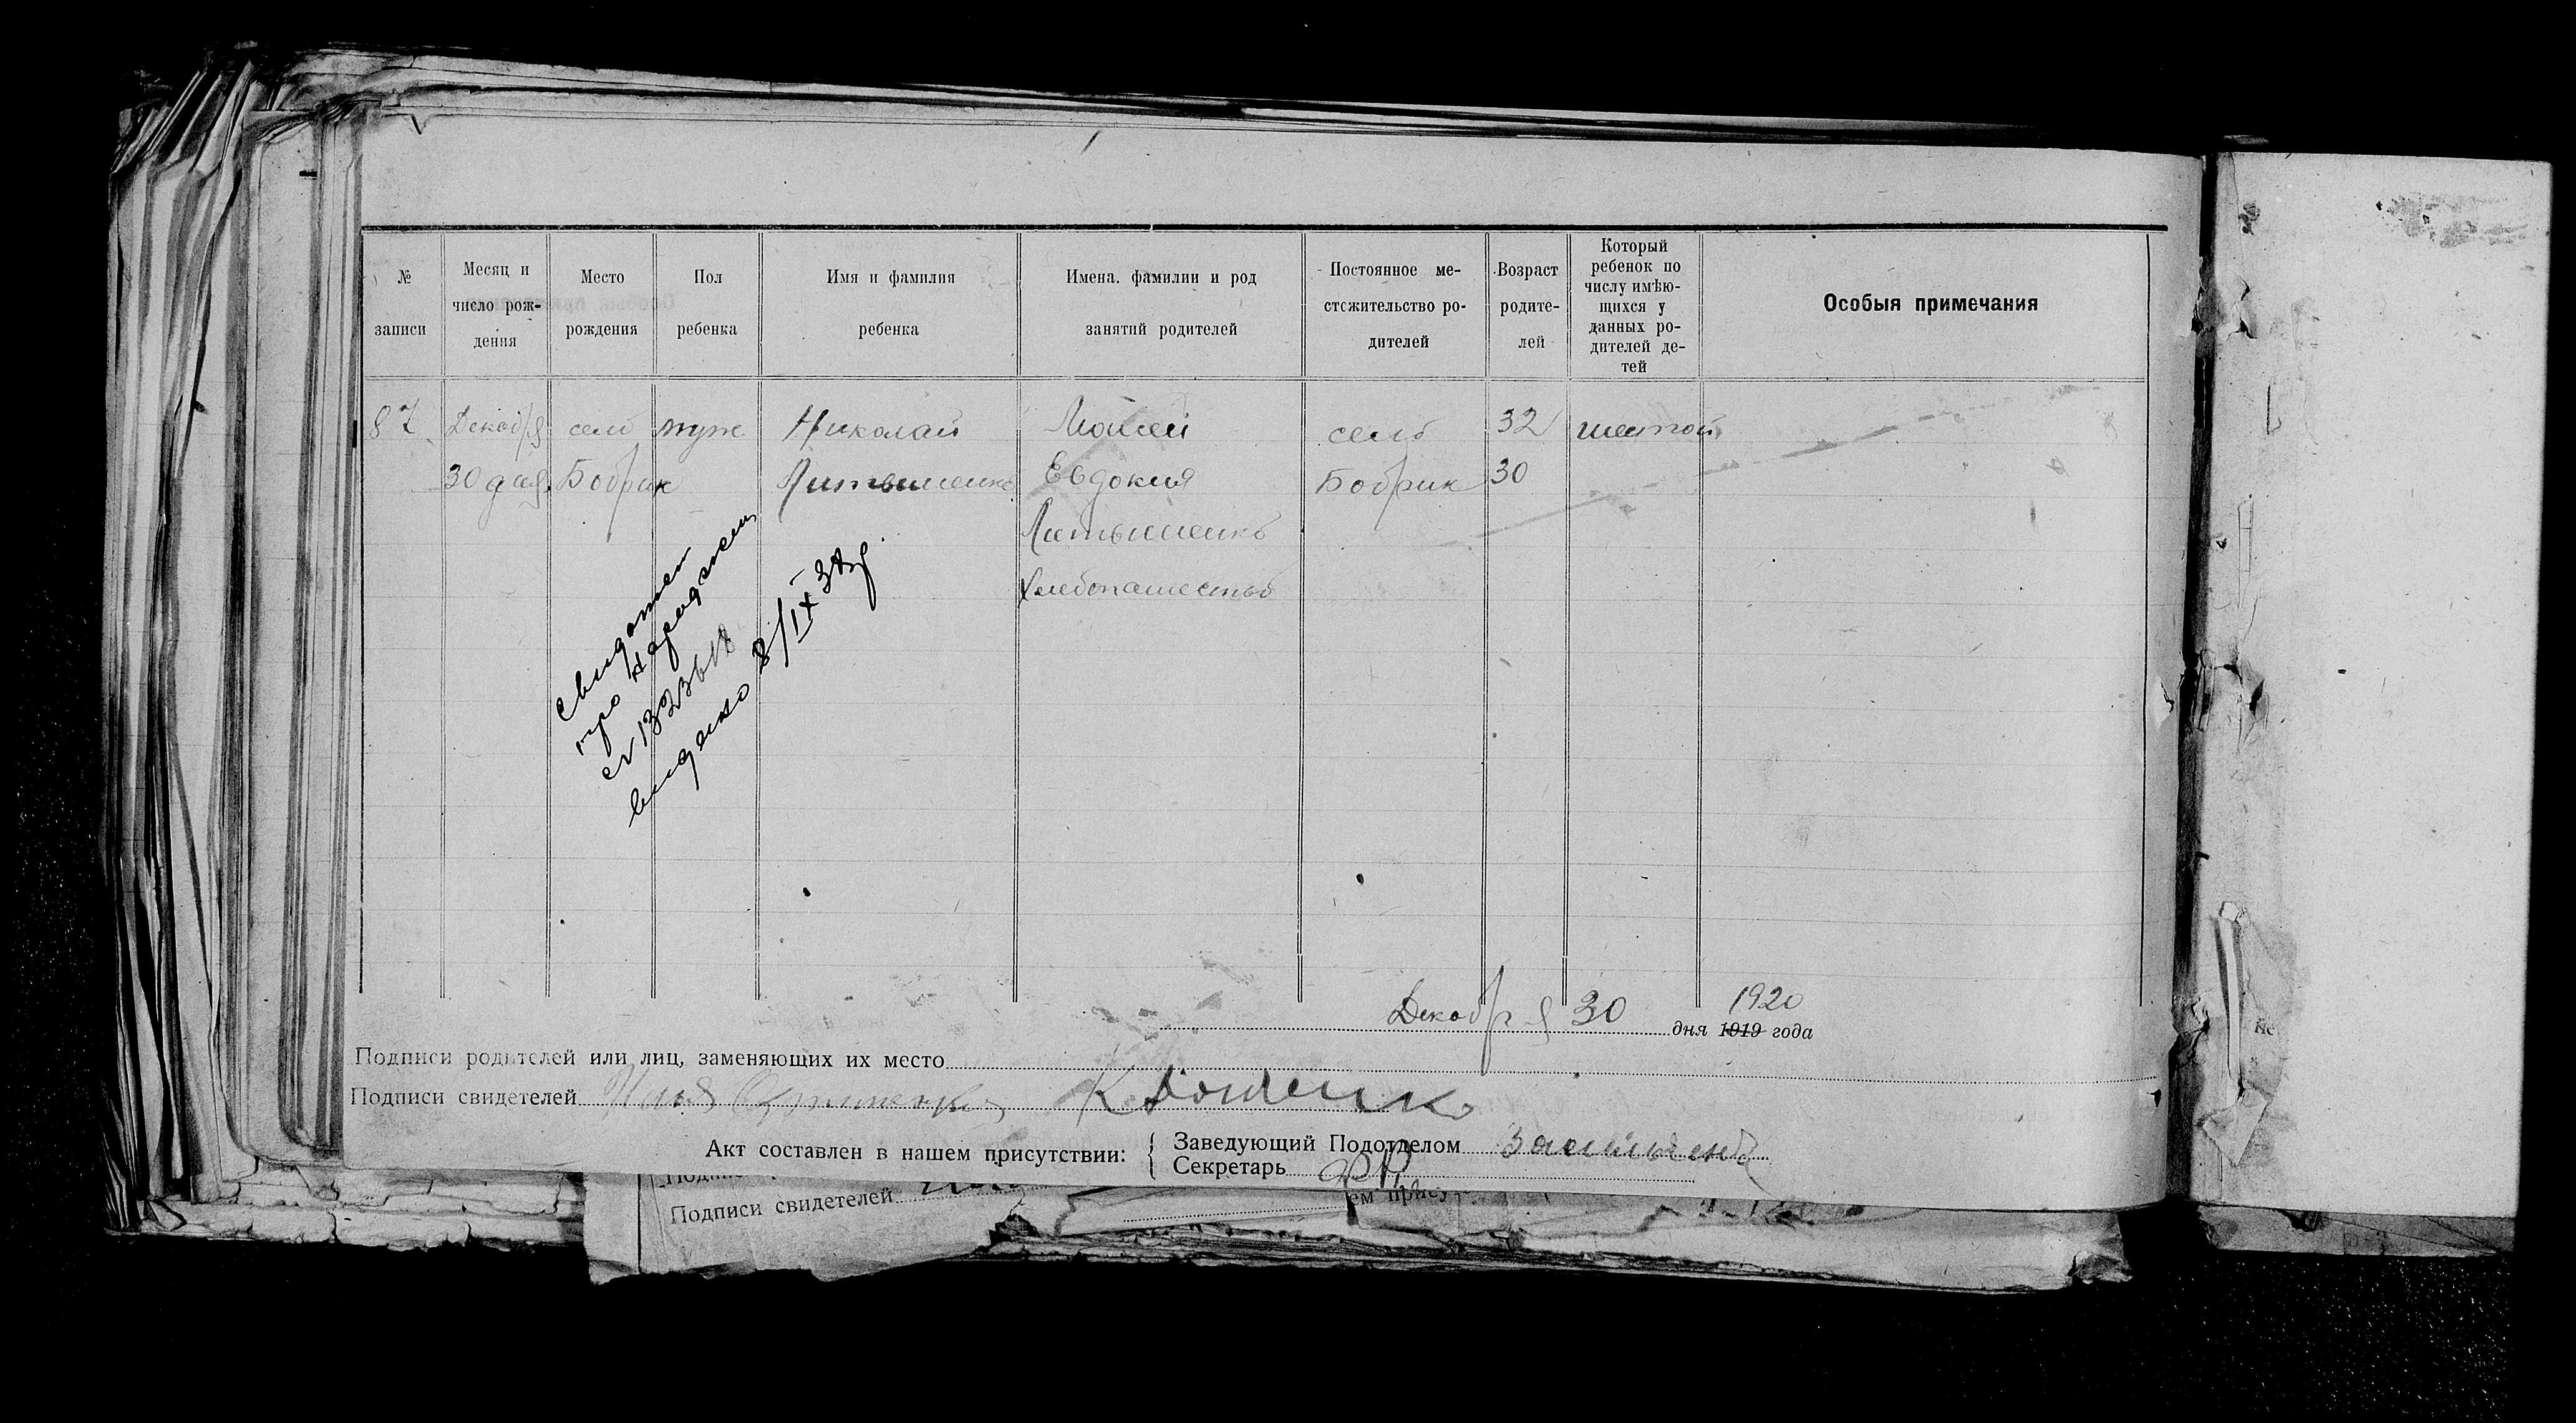 № записи
Месяц и число рож-дения
Место рождения
Пол ребенка
Имя и фамилия ребенка
Имена. фамилии и род занятий родителей
Постоянное ме-стожительство ро-дителей
Возраст родите-лей
Который ребенок по числу имѣю-щихся у данных ро-дителей де-тей
Особыя примечания
87 Декабря село муж Николай Моисей село 32 шестой
30 дня Бобрик Латышенко Евдокия Бобрик 30
Латышенко
Хлебопашество
свидотст
про народжен
видано 8/IX
Декабря 30 дня 1919 1920 года
Подписи родителей или лиц, заменяющих их место
Подписи свидетелей
Акт составлен в нашем присутствии:
Заведующий Подотделом
Секретарь
Подписи свидетелей